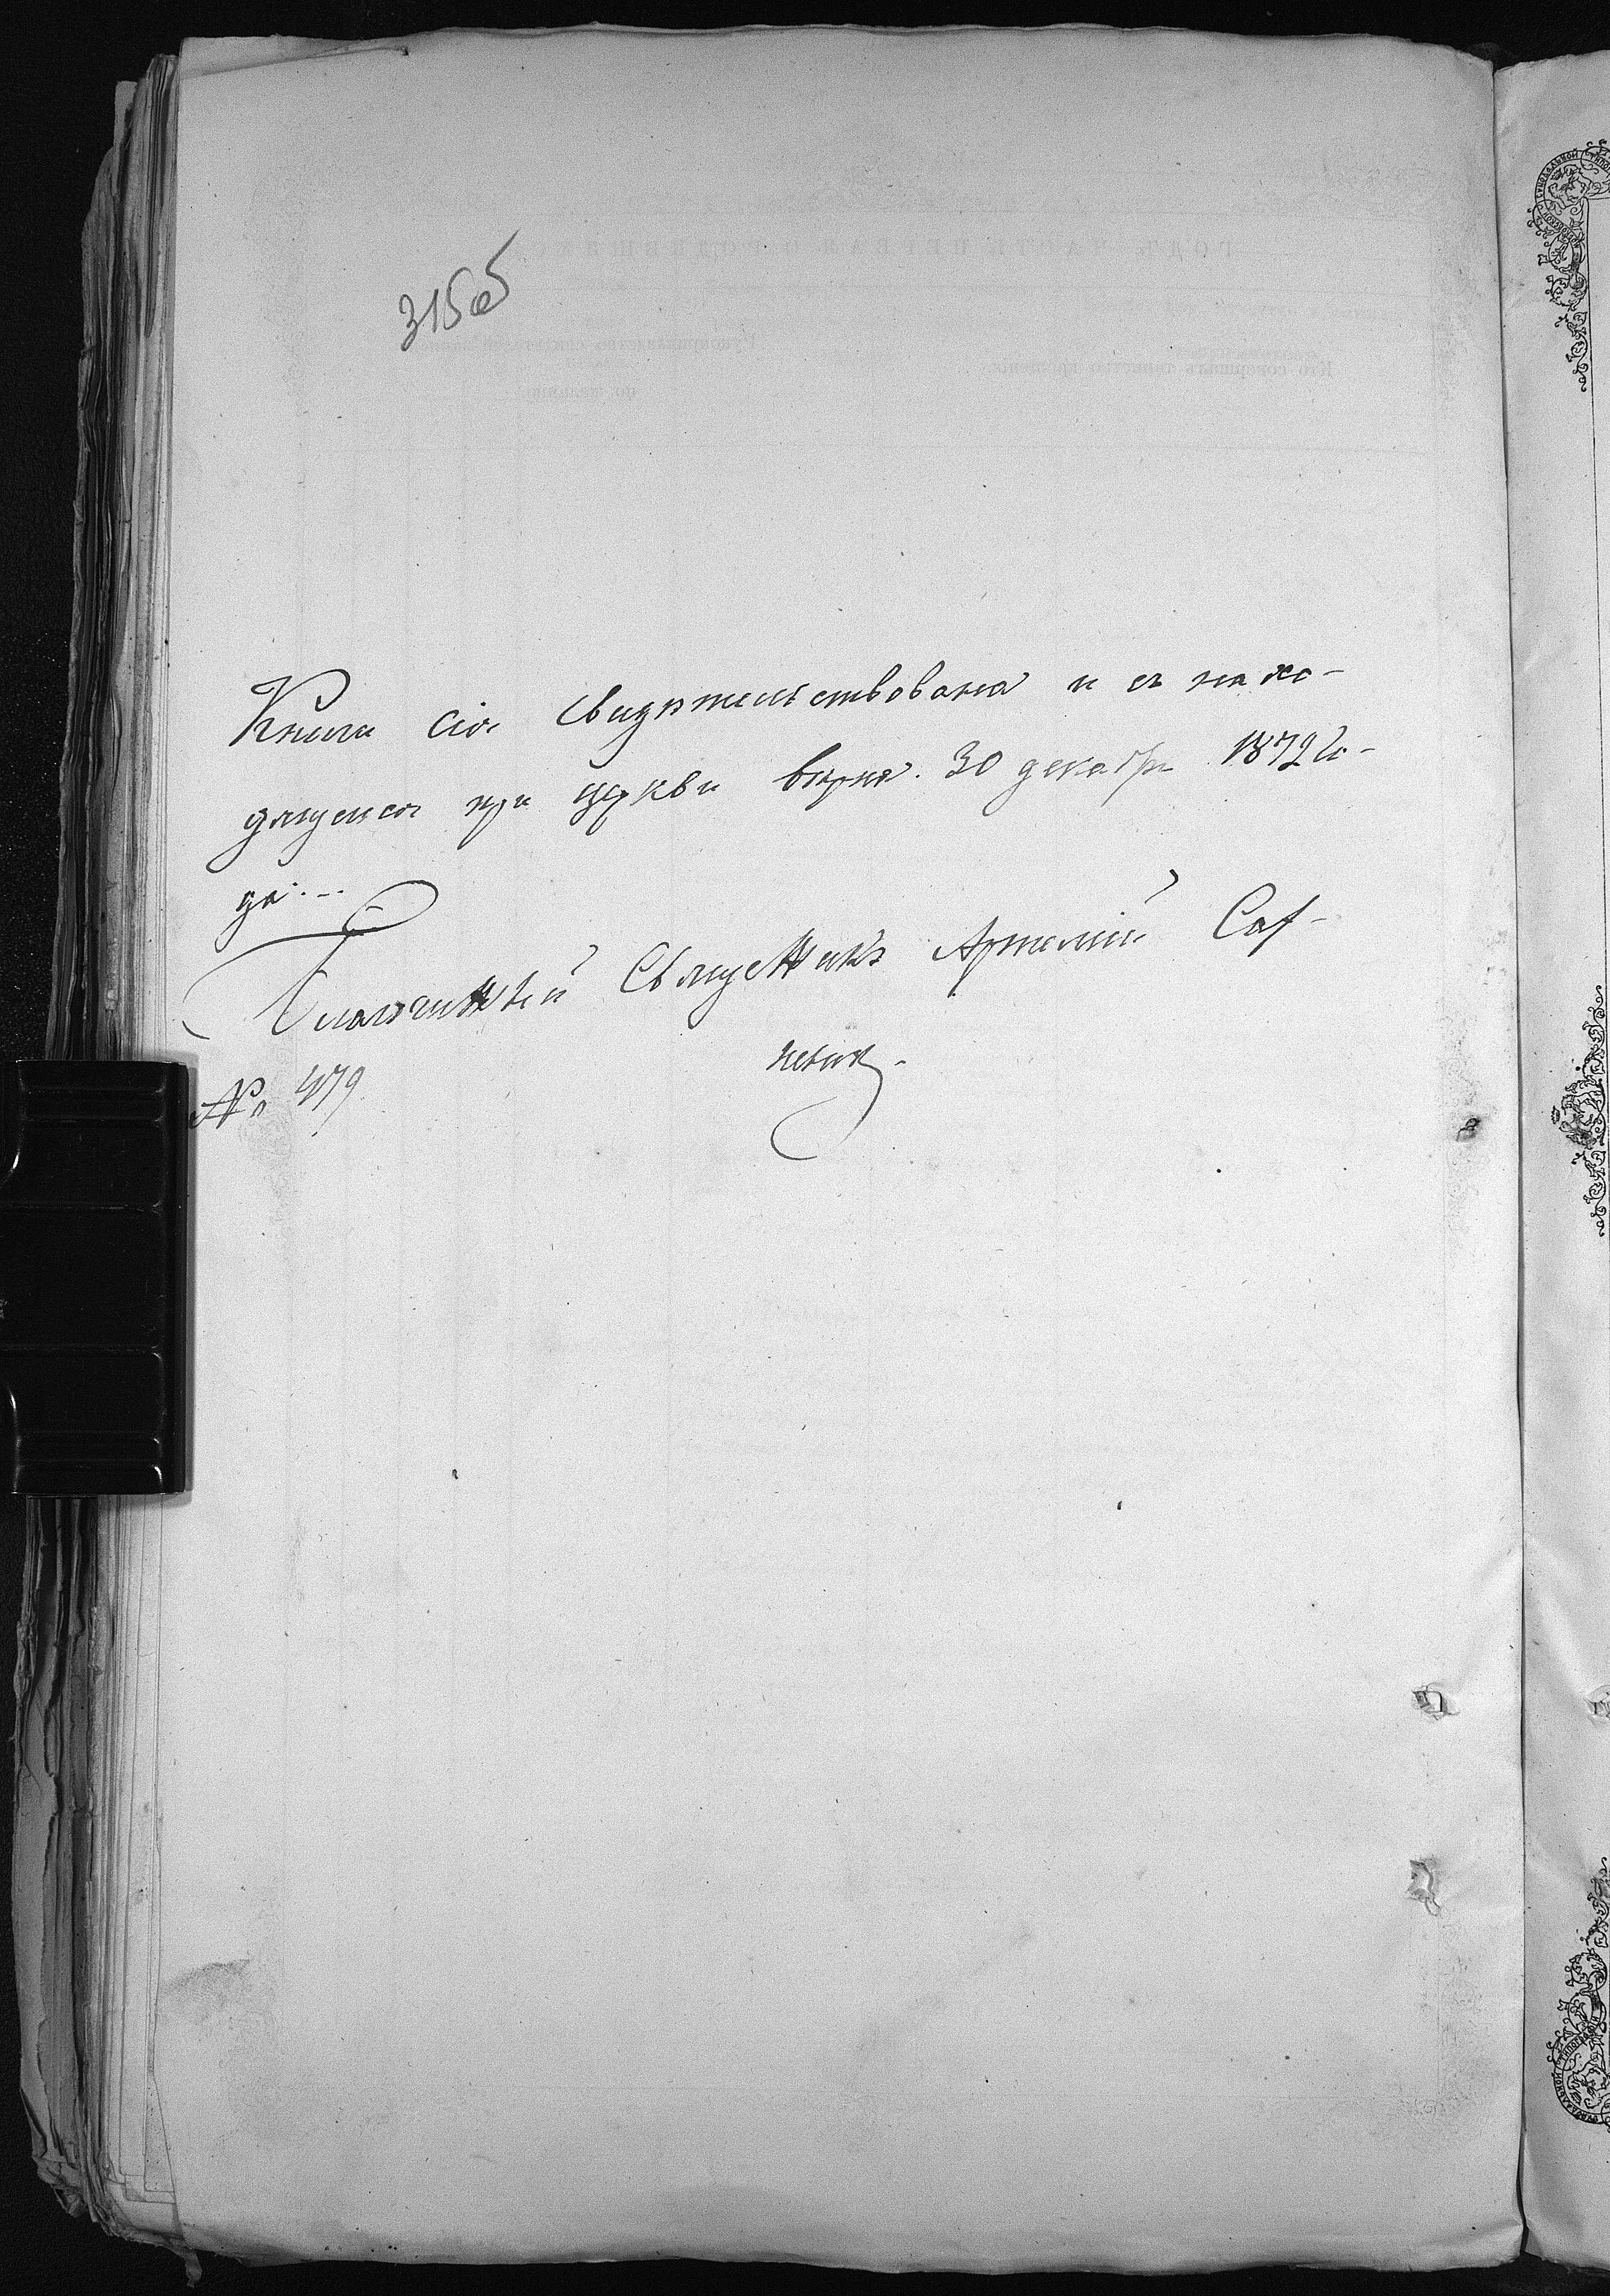 315об
Книга сія свидѣтельствована и съ нахо-
дящеюся при церкви вѣрна. 30 декабр. 1872 го-
да.
Благочинный Священникъ Артемій
№ 479